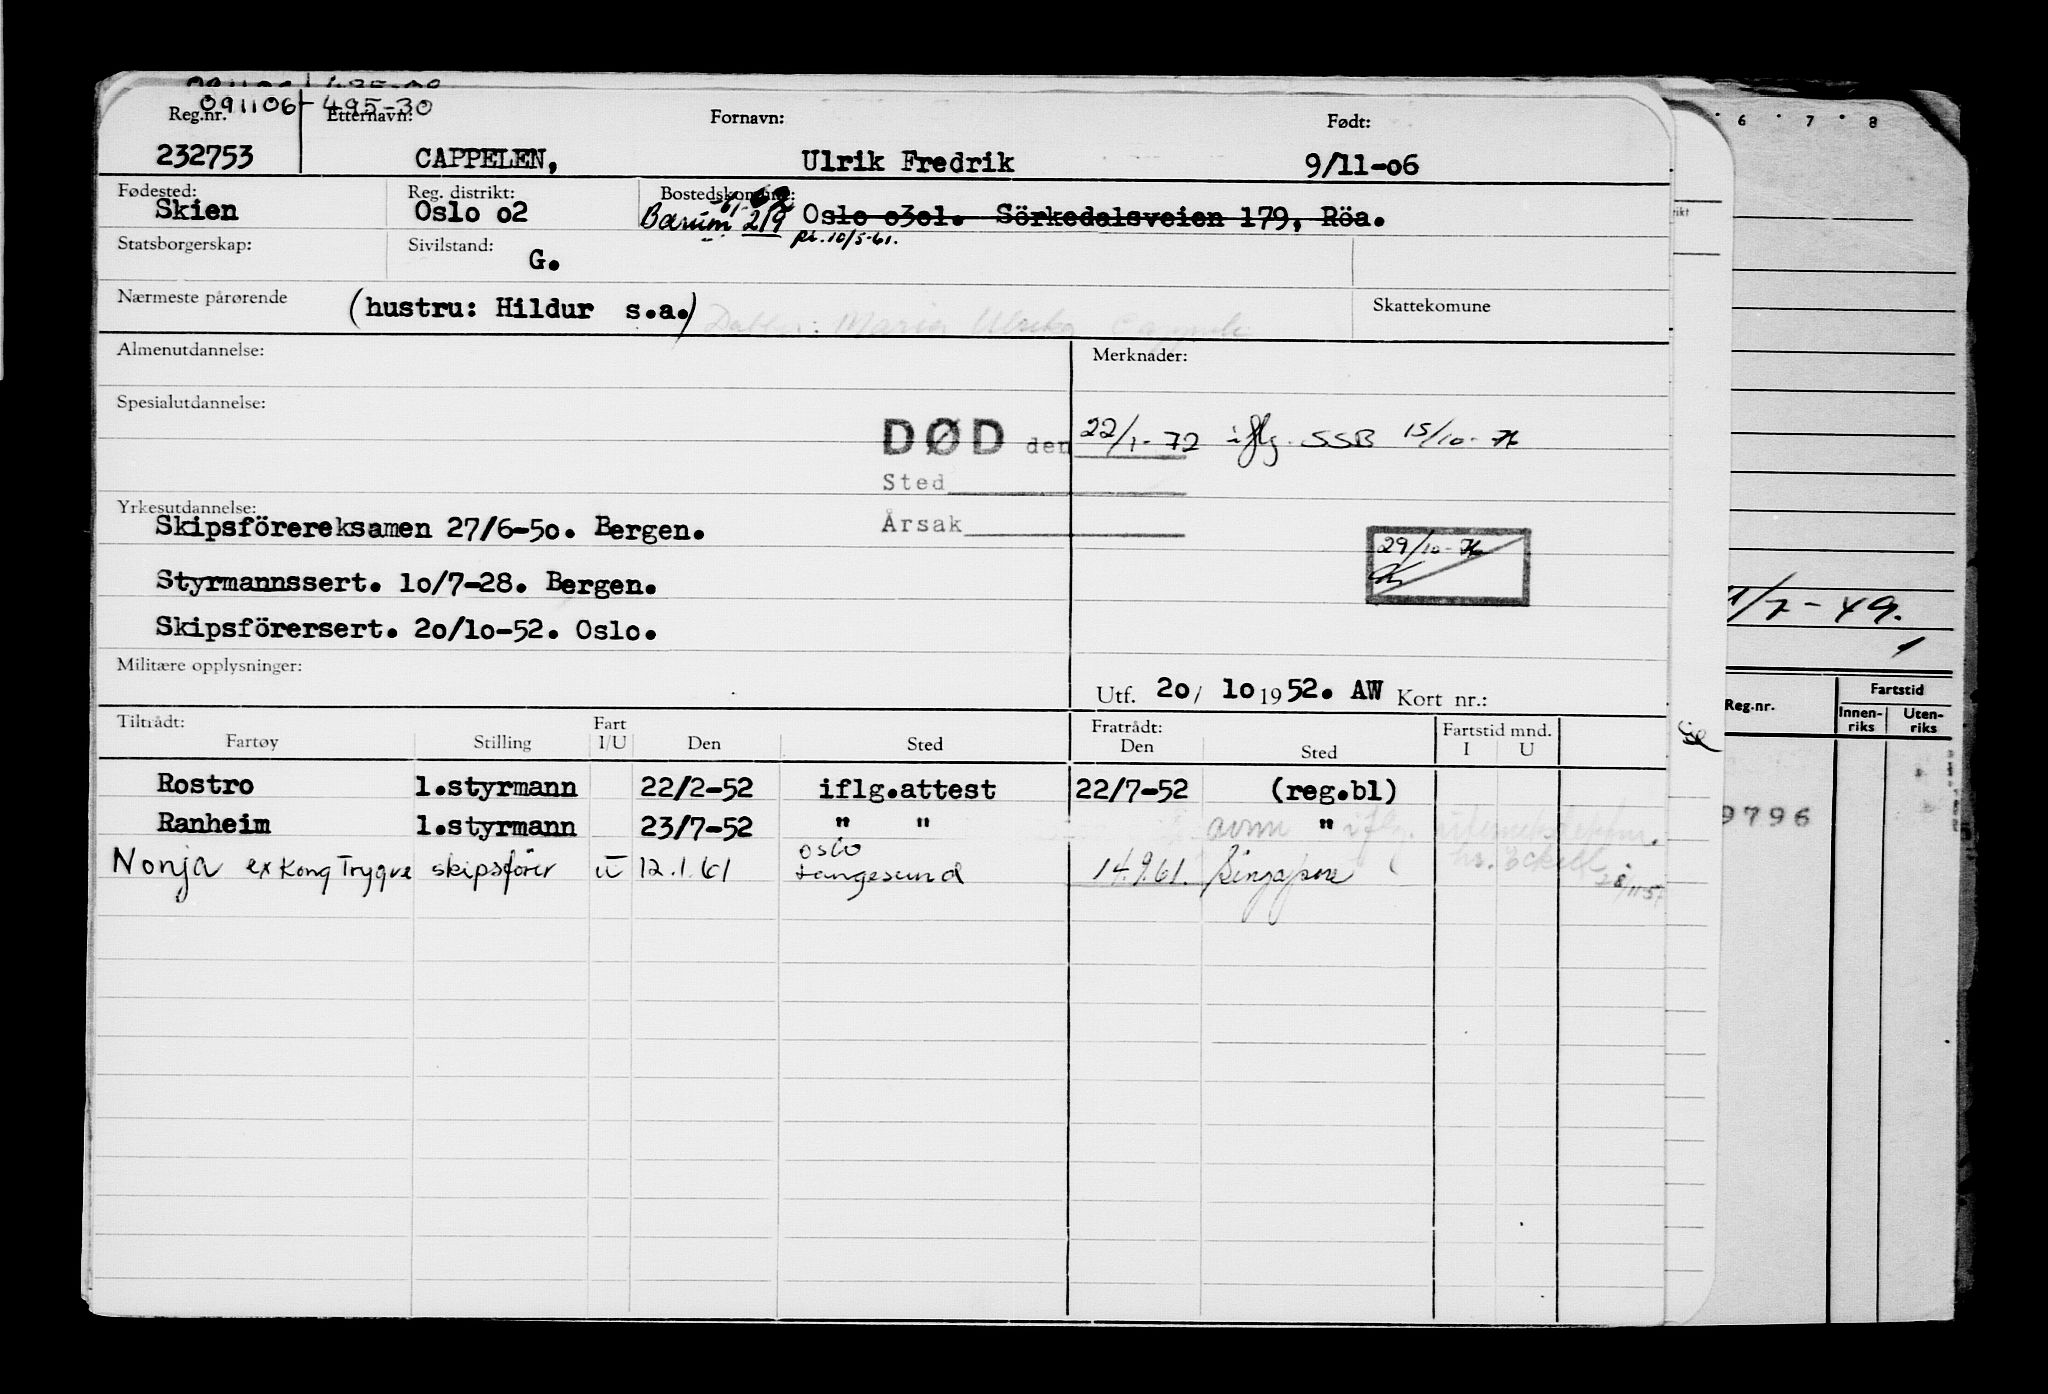 091106-495-30
Reg.nr. Etternavn: Fornavn: Født:
232753 CAPPELEN, Ulrik Fredrik 9/11-06
Fødested: Reg. distrikt: Bostedskomune:
Skien Oslo o2 Bærum 219 Oslo o3ol. Sörkedalsveien 179, Röa.
Statsborgerskap: Sivilstand: G.
Nærmeste pårørende (hustru: Hildur s.a.) Skattekomune
Almenutdannelse: Merknader:
Spesialutdannelse:
DØD den 22/1-72 iflg. SSB 15/10-
Sted
Årsak
Yrkesutdannelse:
Skipsförereksamen 27/6-5o. Bergen.
29/10-
Styrmannssert. lo/7-28. Bergen.
Skipsförersert. 2o/lo-52. Oslo.
Militære opplysninger:
Utf. 2o/ lo 1952. AW Kort nr.:
Tiltrådt: Fratrådt:
Fartøy Stilling Fart I/U Den Sted Den Sted Fartstid mnd. I U
Rostro l.styrmann 22/2-52 iflg.attest 22/7-52 (reg.bl)
Ranheim l.styrmann 23/7-52 " " "
Nonja ex Kong Trygve skipsfører U 12.1.61 Oslo Langesund 14.9.61. Singapore
6 7 8
1/7-49.
Reg.nr. Fartstid
Innen-riks Uten-riks
9796